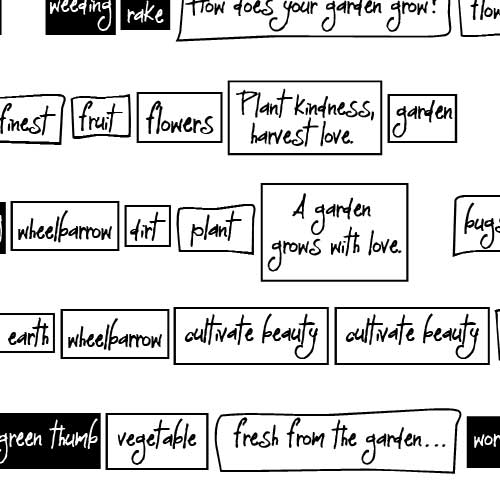 weeding rake How does your garden grow?
finest fruit flowers Plant kindness, garden
harvest love.
wheelbarrow dirt plant A garden
grows with love.
earth wheelbarrow cultivate beauty cultivate beauty
green thumb vegetable fresh from the garden...